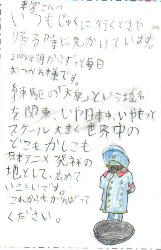 車掌さんへ
いつもじゅくに行くときや
帰る時に見かけています。
2009年4月からずっと毎日
おつかれ様です。
練馬の「大泉」という地名
を関東、いや日本、いやもっと
スケール大きく世界中の
どこもかしこも
日本アニメ発祥の
地として、広めて
いきたいです。
これからもがんばって
ください。